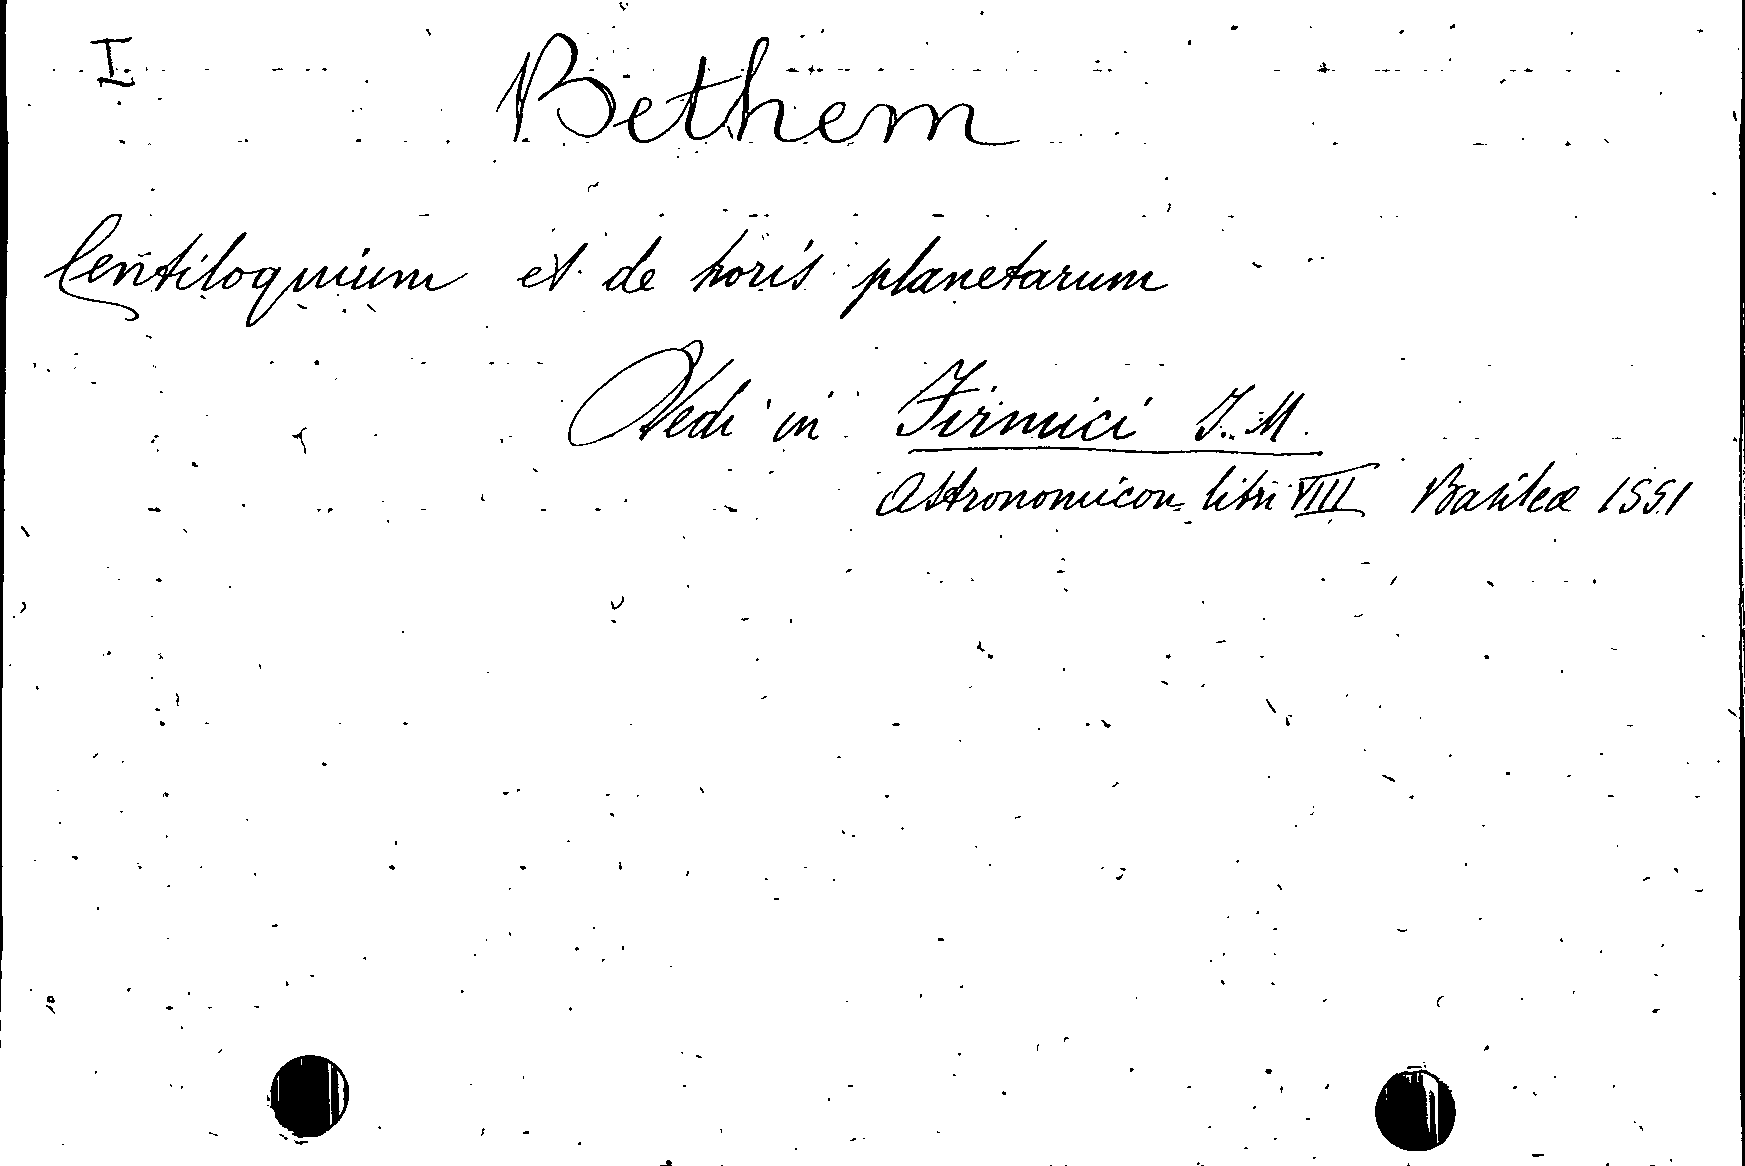 I
Bethem
Centiloquium et de horis planetarum
Vedi in Firmici J. M.
Astronomicon libri VIII Basileæ 1551